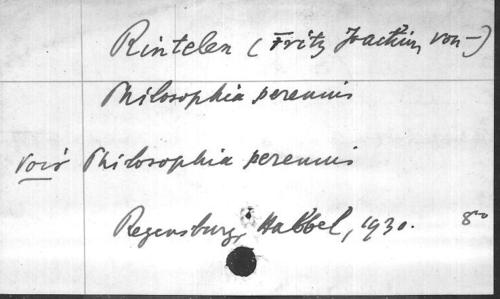 Rintelen (Fritz Joachim von-)
Philosophia perennis
voir Philosophia perennis
Regensburg, Habbel, 1930. 8º